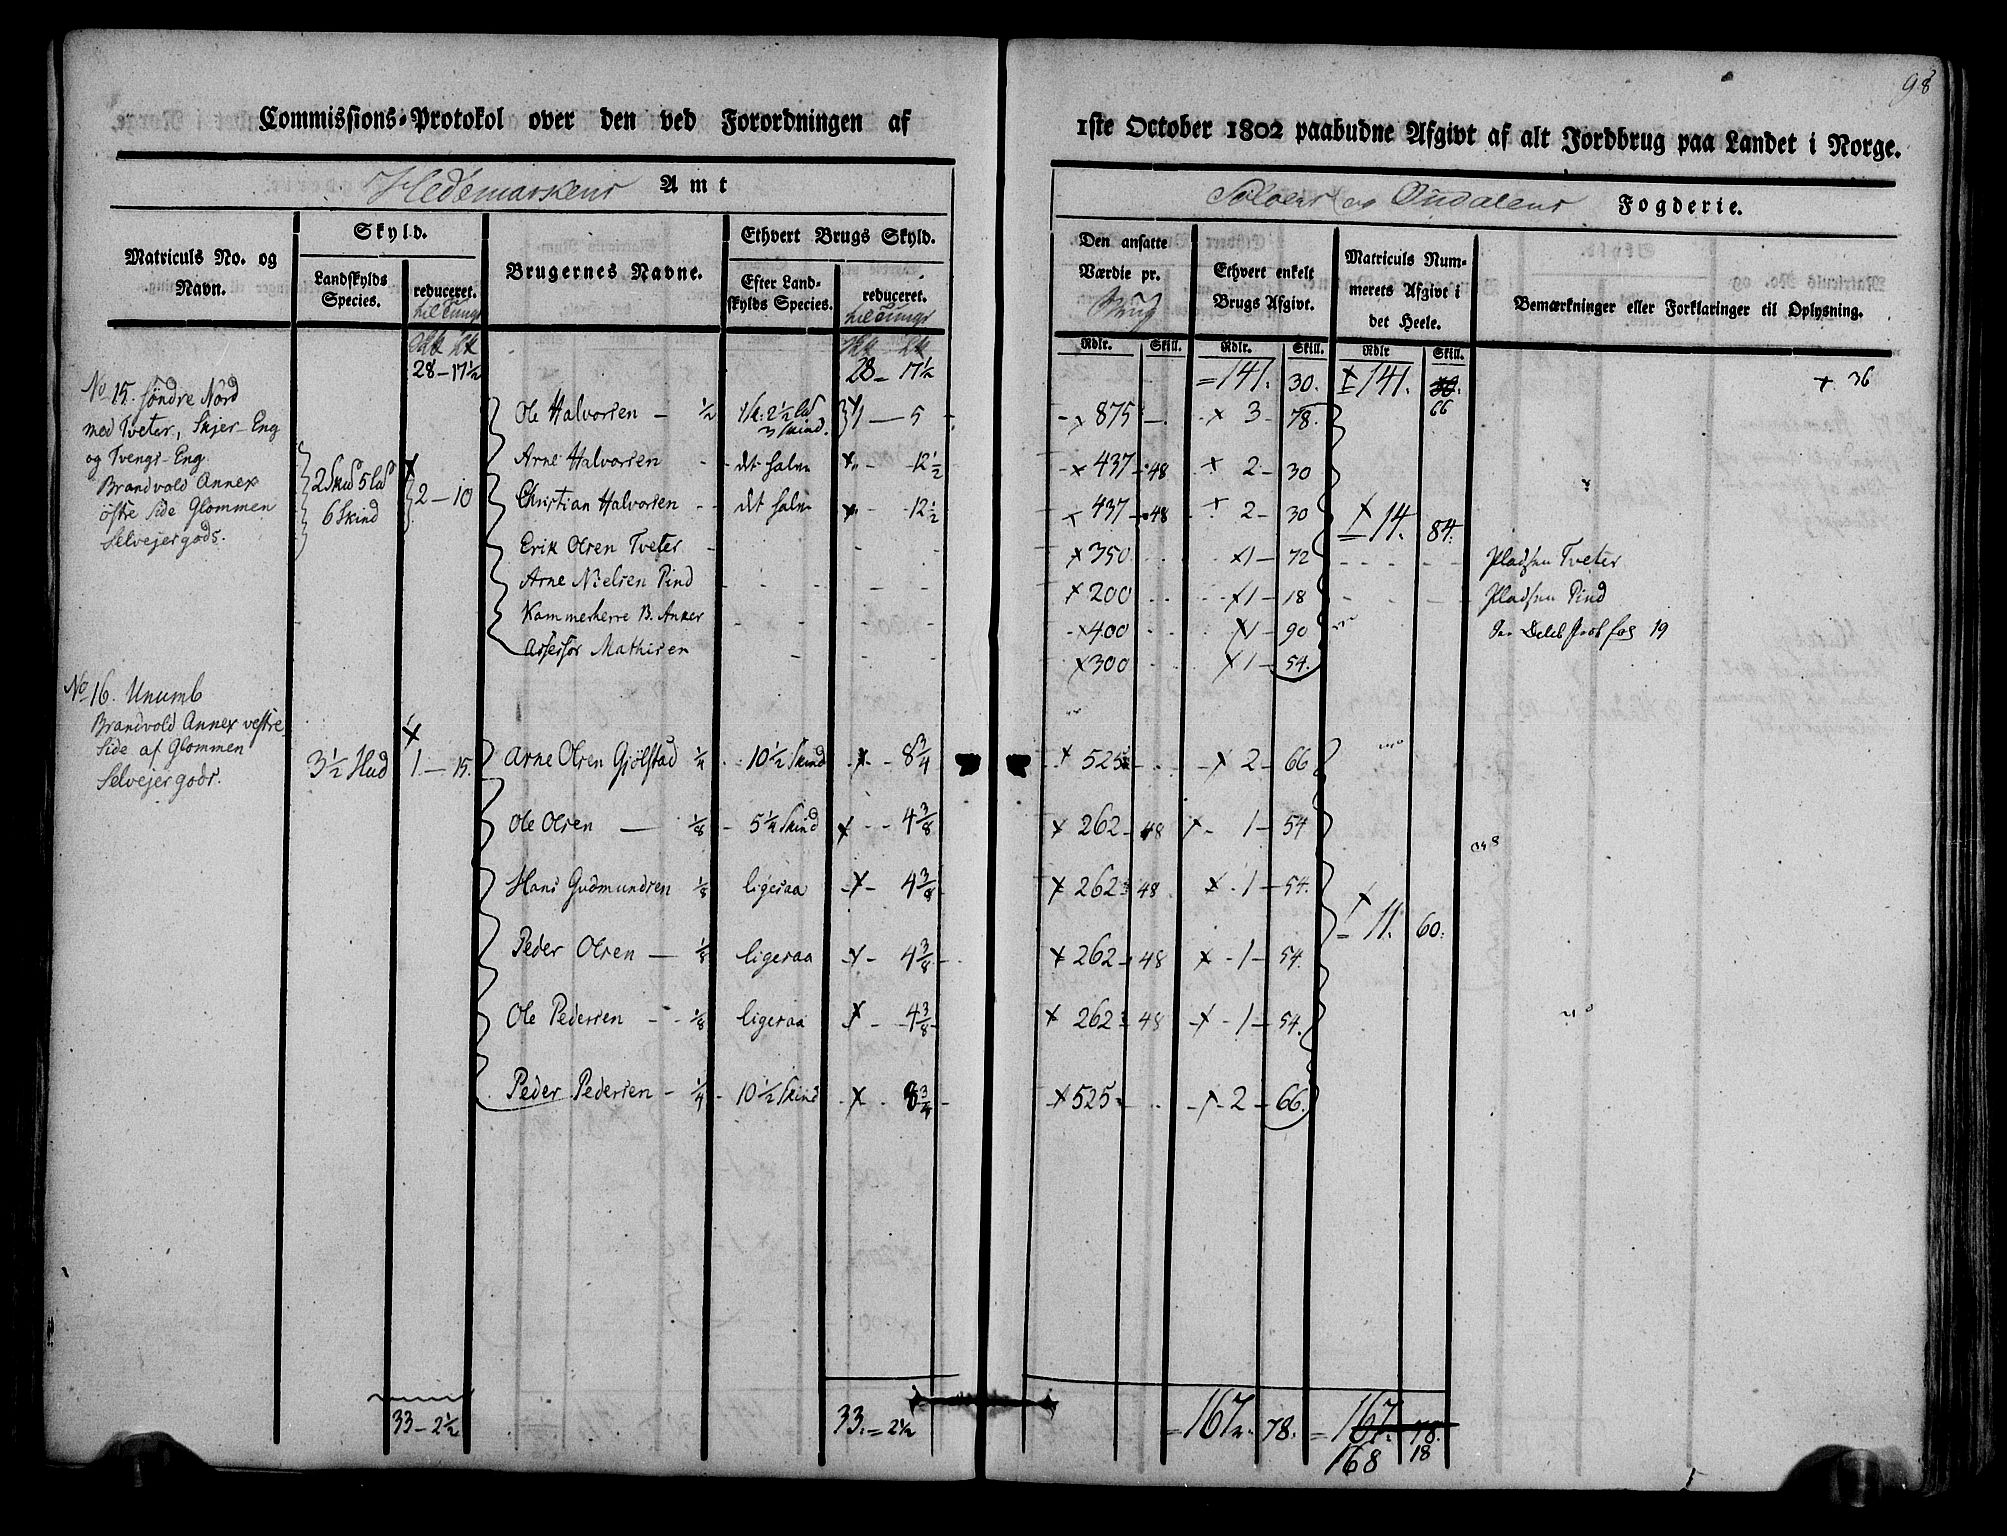 98
Commissions-Protokol over den ved Forordningen af 1ste October 1802 paabudne Afgivt af alt Jordbrug paa Landet i Norge.
Hedemarkens Amt
Soloers og Oudalens Fogderie.
Matriculs No. og Navn.
Skyld.
Landskylds Species.
reduceret.
til Tunge
Brugernes Navne.
Ethvert Brugs Skyld.
Efter Landskylds Species.
reduceret.
til Tunge
Den ansatte Værdie pr.
Brug
Ethvert enkelt Brugs Afgivt.
Matriculs Nummerets Afgivt i det Heele.
Bemærkninger eller Forklaringer til Oplysning.
Rdlr. Skill. Rdlr. Skill. Rdlr Skill.
28 - 17 1/2 28 - 17 1/2 = 141. 30. 141. 66 + 36
No 15. Søndre Nord
med Tveter, Skjer-Eng
og Tvengs-Eng
Brandvold Annex
østre Side Glommen
Selvejergods.
2 Hud 5 Ld
6 Skind
2 - 10
Ole Halvorsen - 1/2 1 h. 2 1/2 Ld 3 Skind. 1 - 5 x 875 - x 3 - 78.
Arne Halvorsen det halve 12 1/2 x 437 - 48 x 2 - 30
Christian Halvorsen det halve 12 1/2 x 437 - 48 x 2 - 30 14. 84.
Erik Olsen Tveter x 350 x 1 - 72 Pladsen Tveter
Arne Nielsen Pind x 200 x 1 - 18 Pladsen Pind
Kammerherre B. Anker x 400 x 1 - 90
Assessor Mathisen x 300 x 1 - 54.
19
No 16. Unumb
Brandvold Annex vestre
Side af Glommen
Selvejergods.
3 1/2 Hud
1 - 15.
Arne Olsen Gjölstad 1/4 10 1/2 Skind x 8 3/4 x 525 x 2 - 66
Ole Olsen - 1/8 5 1/4 Skind x 4 3/8 x 262 - 48 x 1 - 54
Hans Gudmundsen 1/8 ligesaa x 4 3/8 x 262 48 x 1 - 54.
Peder Olsen - 1/8 ligesaa x 4 3/8 x 262 - 48 x 1 - 54. 11. 60.
Ole Pedersen 1/8 ligesaa x 4 3/8 x 262 48 x 1 - 54.
Peder Pedersen - 1/4 10 1/2 Skind x 8 3/4 x 525 x 2 - 66.
33 - 2 1/2 33. = 2 1/2 = 167 78. = 167. 78.
168 18